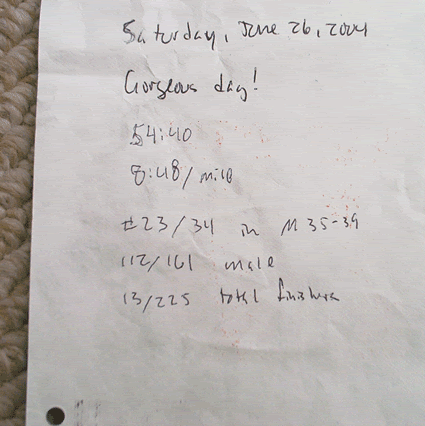 Saturday, June 26, 2004
Gorgeous day!
54:40
8:48/mile
#23/34 in M 35-39
112/161 male
13/225 total finishers